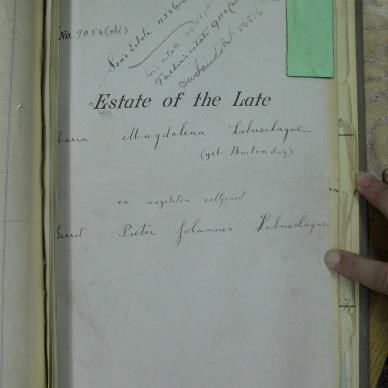 No. 9054 (old)
Son's Estate
Father's estate
Husband's Est. 58816
Estate of the Late
Maria Magdalena Labuschagne
(geb Buitendag)
en nagelaten echtgenoot
Gerrit Pieter Johannes Labuschagne